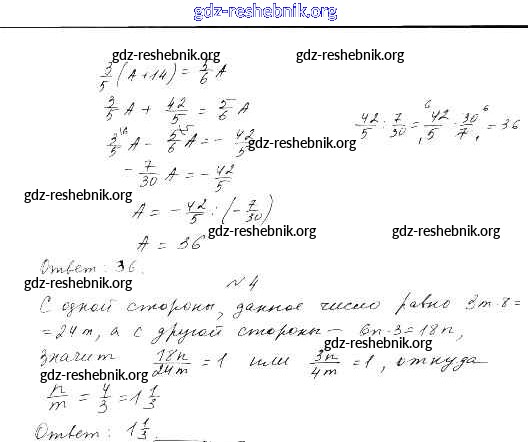 gdz-reshebnik.org
gdz-reshebnik.org gdz-reshebnik.org
3/5 (A+14) = 5/6 A
3/5 A + 42/5 = 5/6 A
42/5 : 7/30 = 42/5 · 30/7 = 36
3/5 A - 5/6 A = - 42/5
gdz-reshebnik.org
- 7/30 A = - 42/5
gdz-reshebnik.org
A = - 42/5 : (- 7/30)
gdz-reshebnik.org gdz-reshebnik.org
A = 36
Ответ: 36.
gdz-reshebnik.org
№4
С одной стороны, данное число равно 3m·8=
=24m, а с другой стороны - 6n·3=18n,
gdz-reshebnik.org
значит 18n/24m = 1 или 3n/4m = 1, откуда
gdz-reshebnik.org
n/m = 4/3 = 1 1/3
Ответ: 1 1/3.